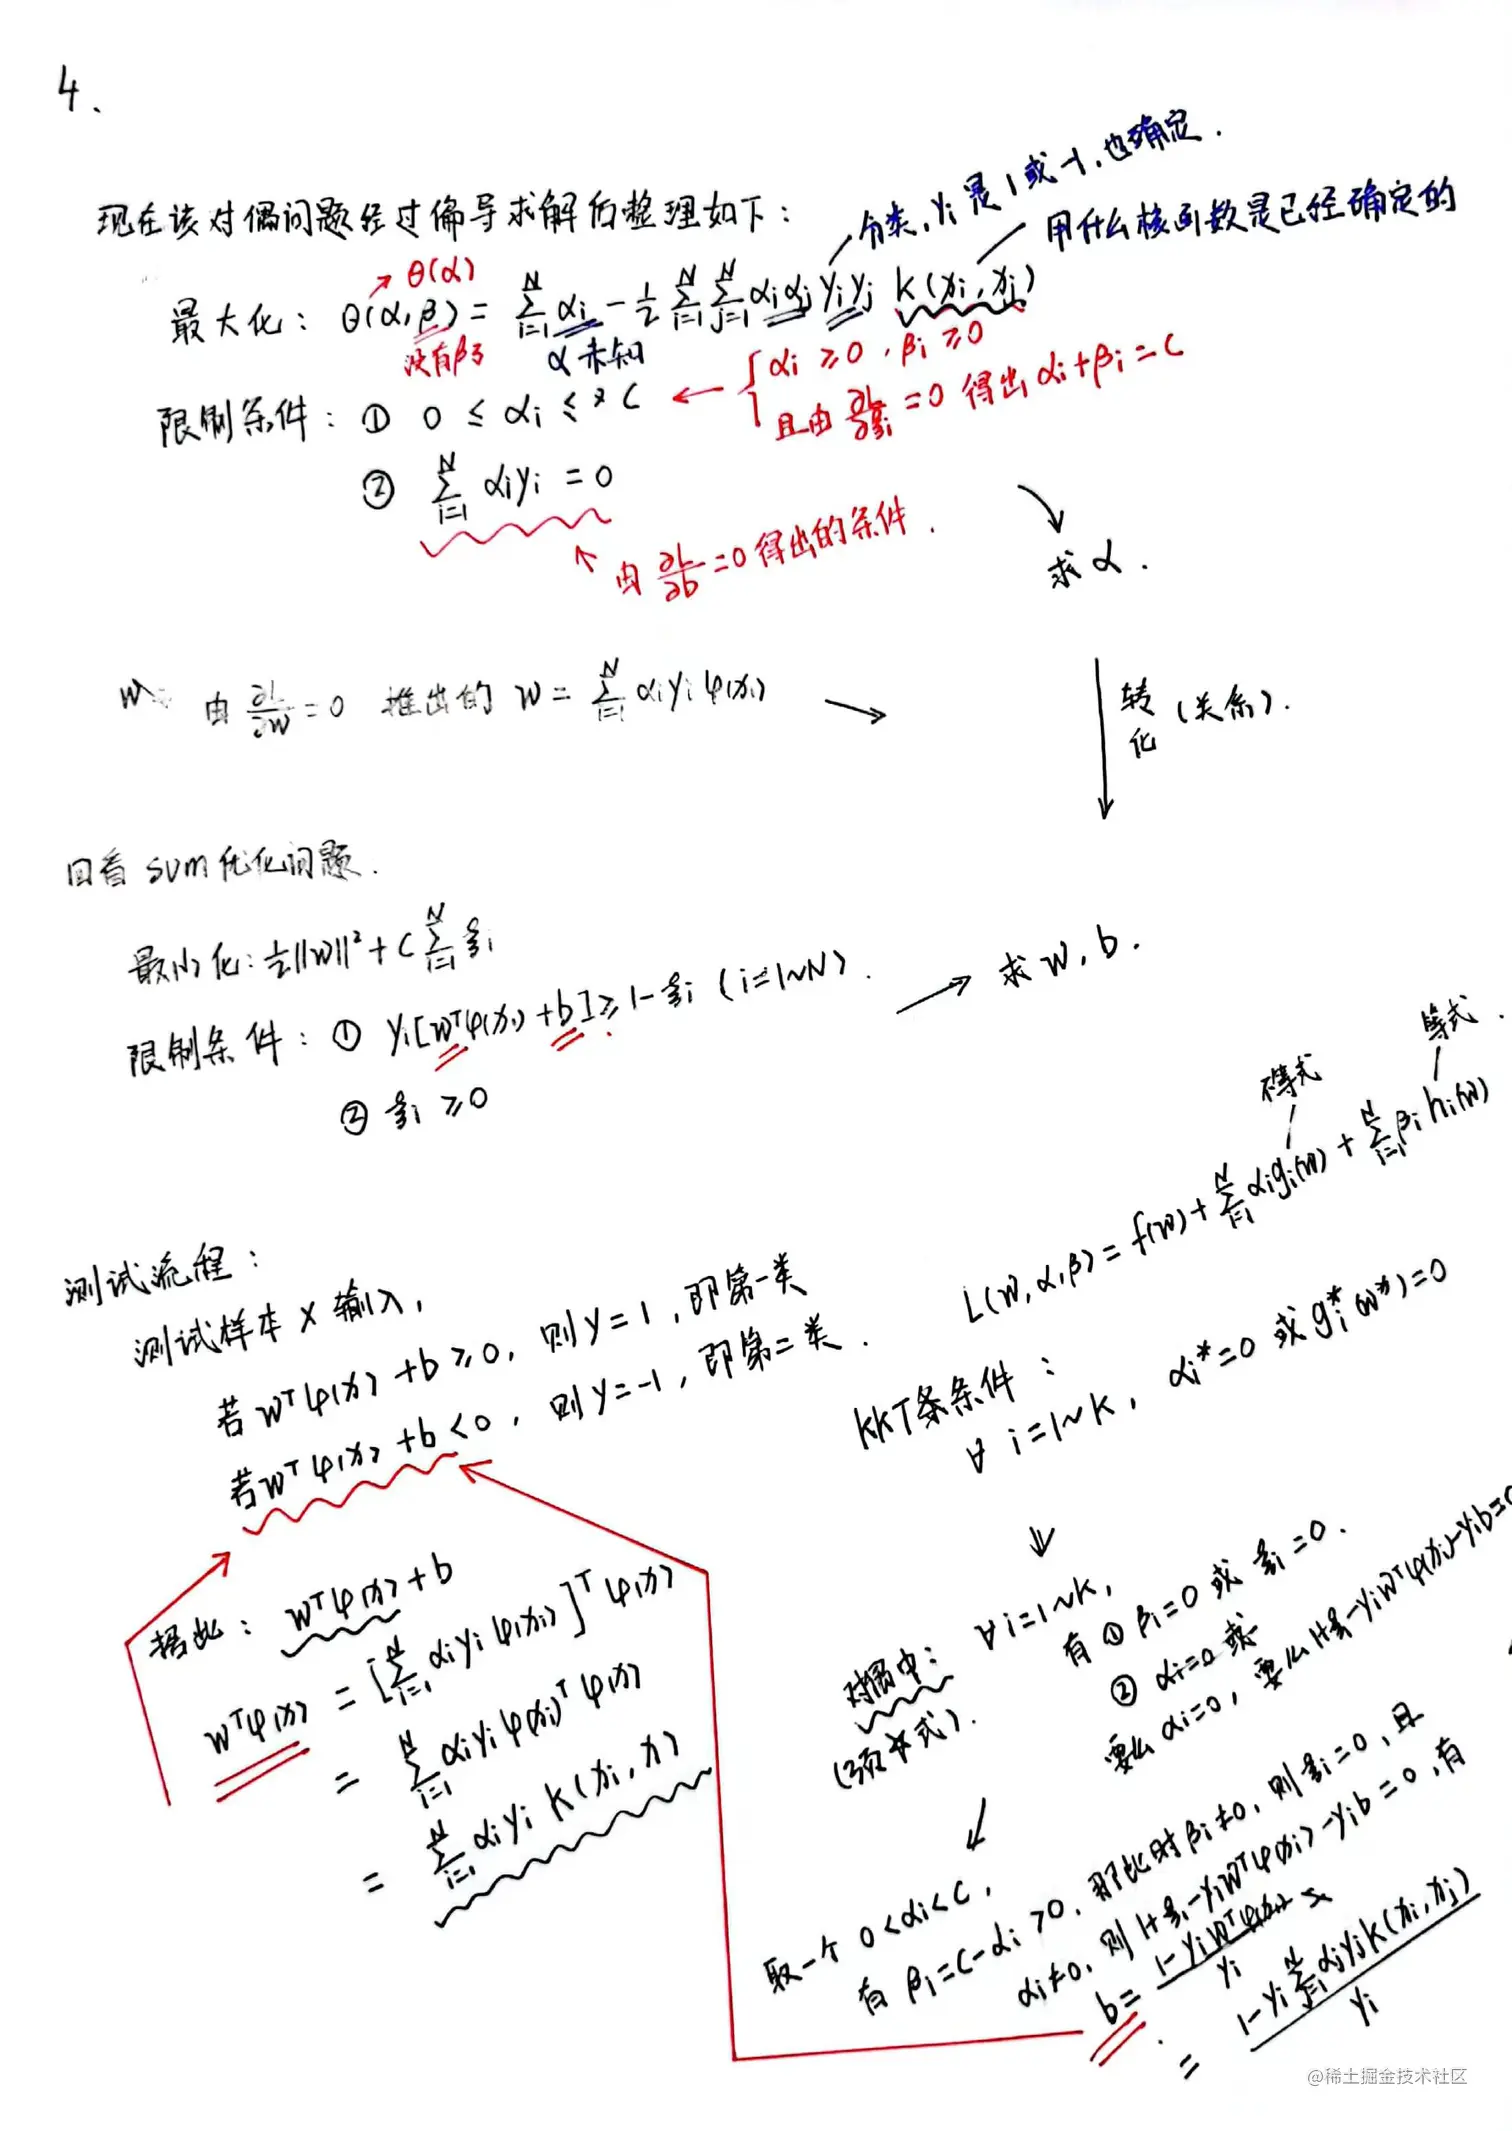 4、
现在该对偶问题经过偏导求解后整理如下：
分类，yi 是 1 或 -1，也确定．
用什么核函数是已经确定的
→ θ(α)
最大化：θ(α,β) = ∑_{i=1}^{N} αi - 1/2 ∑_{i=1}^{N} ∑_{j=1}^{N} αiαj yiyj K(xi, xj)
没有β了
α 未知
限制条件：① 0 ≤ αi ≤ C ← { αi ≥ 0，βi ≥ 0
且由 ∂L/∂ξi = 0 得出 αi + βi = C
② ∑_{i=1}^{N} αiyi = 0
由 ∂L/∂b = 0 得出的条件．
求 α．
由 ∂L/∂W = 0 推出的 W = ∑_{i=1}^{N} αiyiφ(xi) →
转化（关系）．
回看 SVM 优化问题．
最小化：1/2||W||² + C∑_{i=1}^{N} ξi
限制条件：① yi[WᵀΦ(xi) + b] ≥ 1 - ξi (i=1~N)．
→ 求 W, b．
② ξi ≥ 0
不等式
等式．
L(W, α, β) = f(W) + ∑_{i=1}^{N} αigi(W) + ∑_{i=1}^{N} βihi(W)
测试流程：
测试样本 X 输入，
若 Wᵀφ(x) + b ≥ 0，则 y = 1，即第一类
若 Wᵀφ(x) + b < 0，则 y = -1，即第二类．
KKT条条件：
∀ i=1~K，αi* = 0 或 gi*(W*) = 0
⇓
据此：Wᵀφ(x) + b
Wᵀφ(x) = [∑_{i=1}^{N} αiyiφ(xi)]ᵀφ(x)
= ∑_{i=1}^{N} αiyiφ(xi)ᵀφ(x)
= ∑_{i=1}^{N} αiyi K(xi, x)
对偶中：
∀ i=1~K，
有 ① βi = 0 或 ξi = 0．
② αi = 0 或
要么 αi = 0，要么 1+ξi - yiWᵀφ(xi) - yib = 0
取一个 0 < αi < C，
有 βi = C - αi > 0，那此时 βi ≠ 0，则 ξi = 0，且
αi ≠ 0，则 1+ξi - yiWᵀφ(xi) - yib = 0，有
b = (1 - yiWᵀφ(xi)) / yi
= (1 - yi∑_{j=1}^{N} αjyjK(xi, xj)) / yi
@稀土掘金技术社区